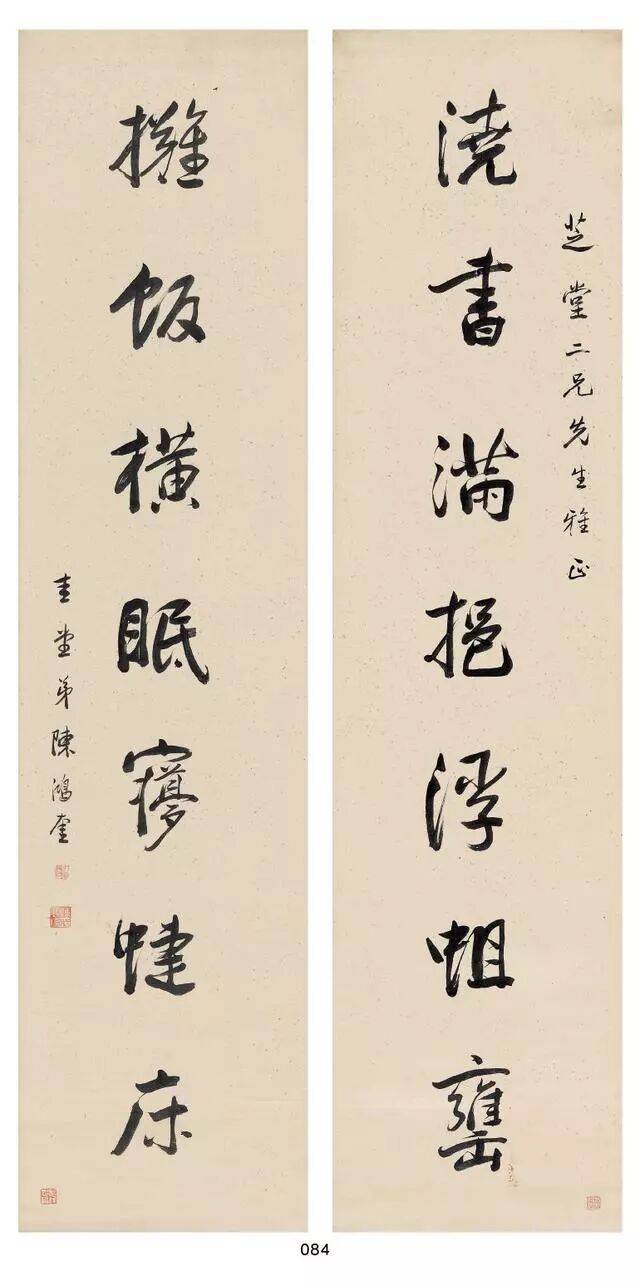 芝堂二兄先生雅正
澆書滿挹浮蛆罋
攤飯橫眠㝱蜨床
圭堂弟陳鴻奎
084